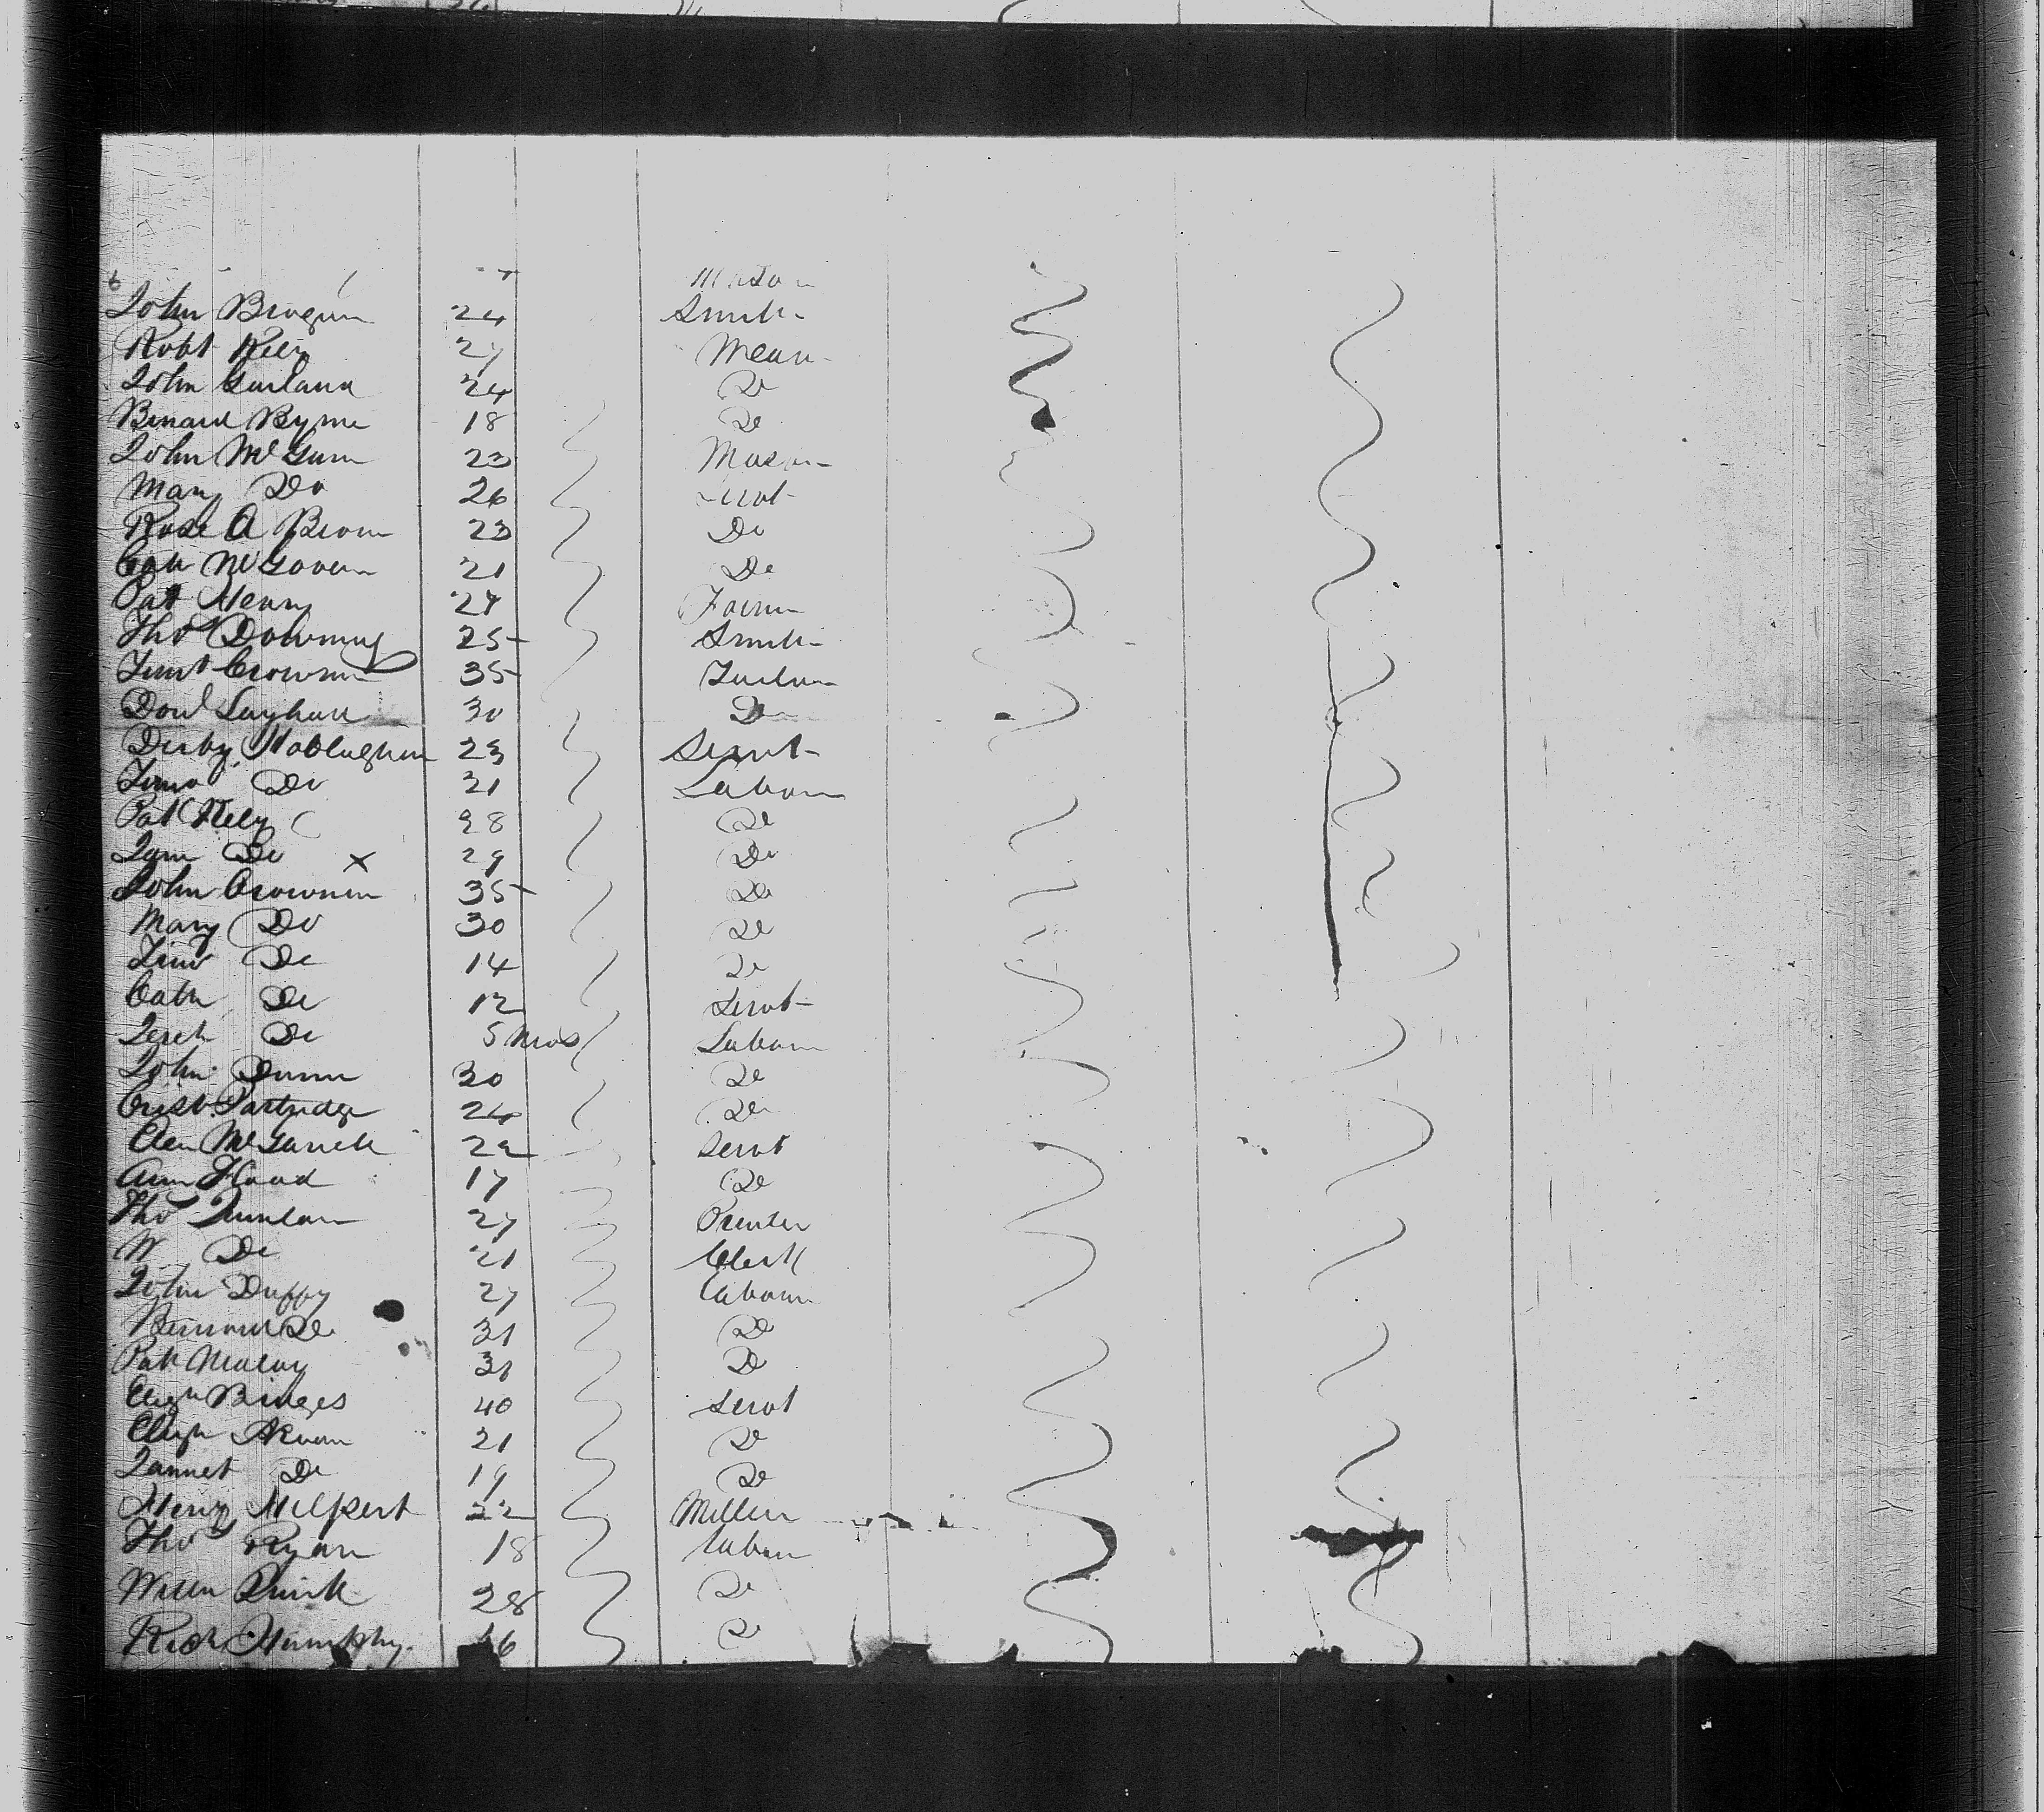 Mason
John Brogan 24 Smith
Robt Kely 27 Mean
John Garland 24 Do
Benard Byrne 18 Do
John McGann 23 Mason
Mary Do 26 Servt
Rose A Brown 23 Do
Cath McGovern 21 Do
Pat Henry 27 Farm
Thos Downing 25
Smith
Crownin 35
Danl 30 Do
Derby 23 Servt
Timo Do 21 Labour
Pat Kely 28 Do
Jam Do x 29 Do
John Crownin 35 Do
Mary Do 30 Do
Timo Do 14 Do
Cath Do 12 Servt
Do 5 Mos Labour
John Dunn 30 Do
Crist Partridge 24 Do
McGarrell 22 Servt
Ann Flood 17 Do
Thos Quinlan 27 Printer
W Do 21 Clerk
John Duffy 27 Labour
Bernard Do 31 Do
Pat 31 Do
Bridges 40 Servt
21 Do
Jannet Do 19 Do
Henry Milpert 22 Miller
Thos Ryan 18 Labour
Willm Quirk 28 Do
Rich Humphy. 16 Do